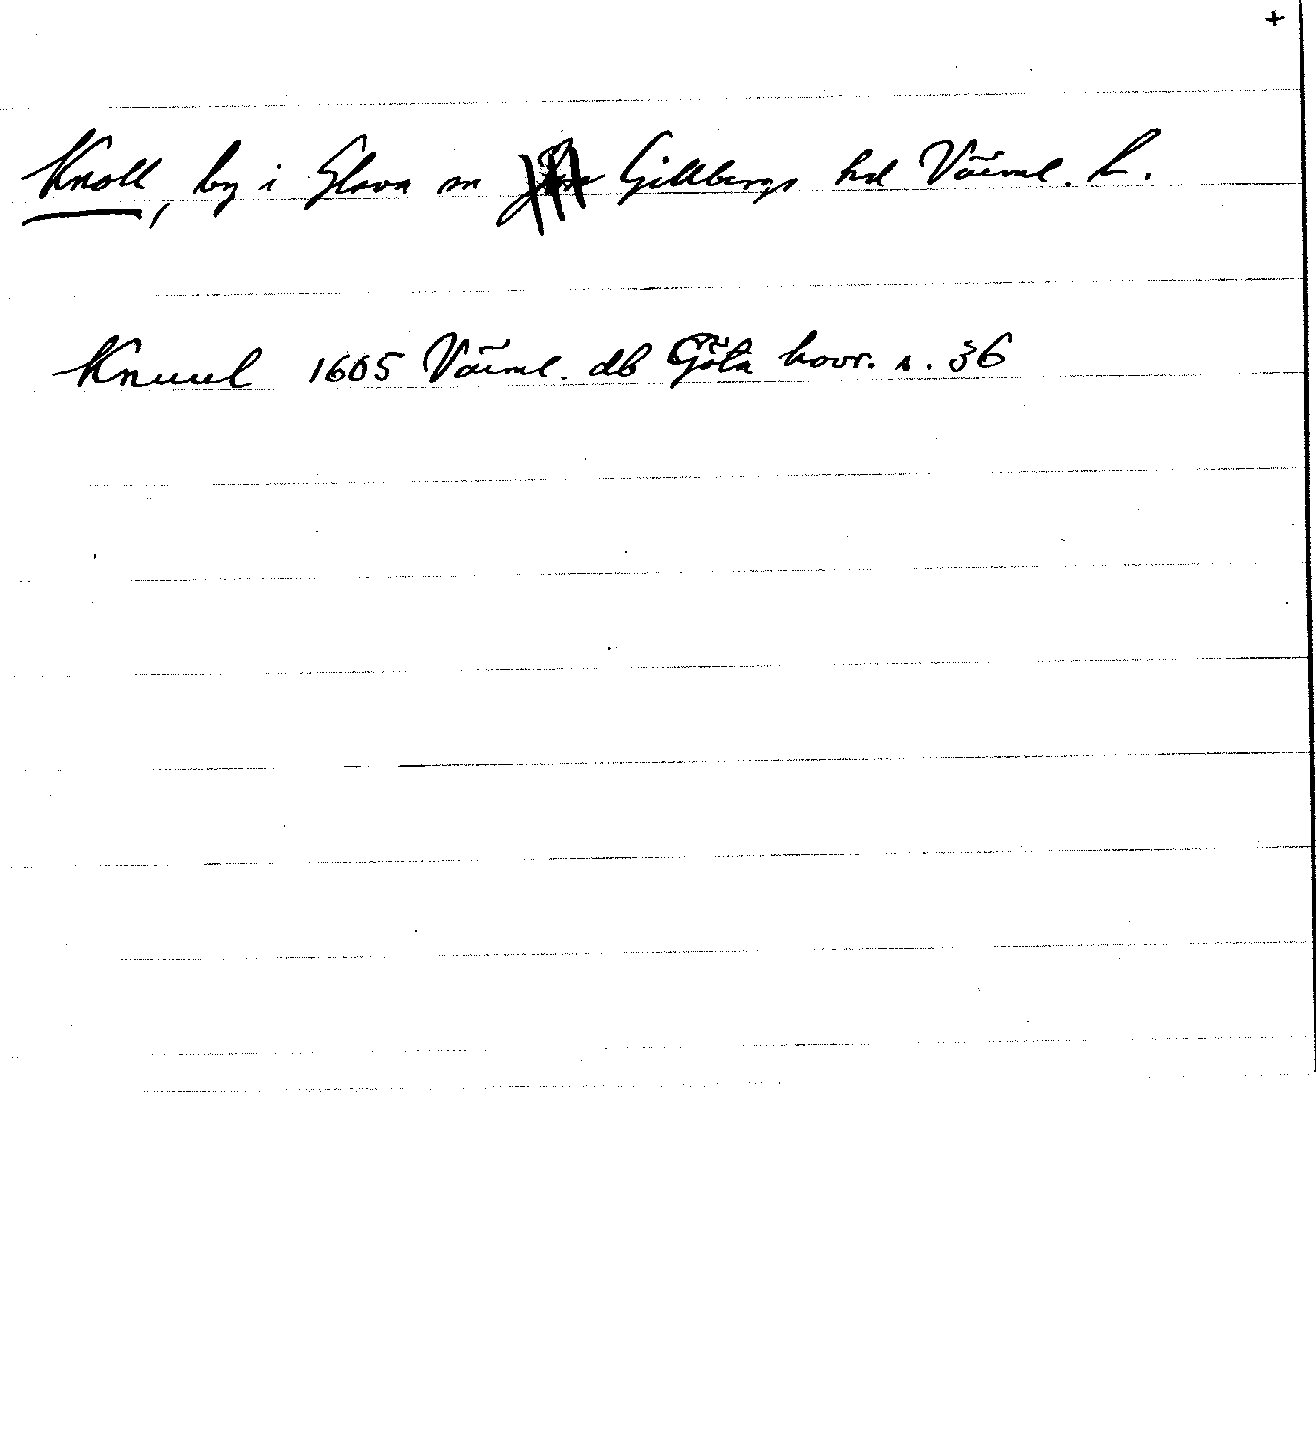 +
Knoll, by i Glava sn Gillbergs hd Värml. L.
Knuul 1605 Värml. db Göta hovr. s. 36